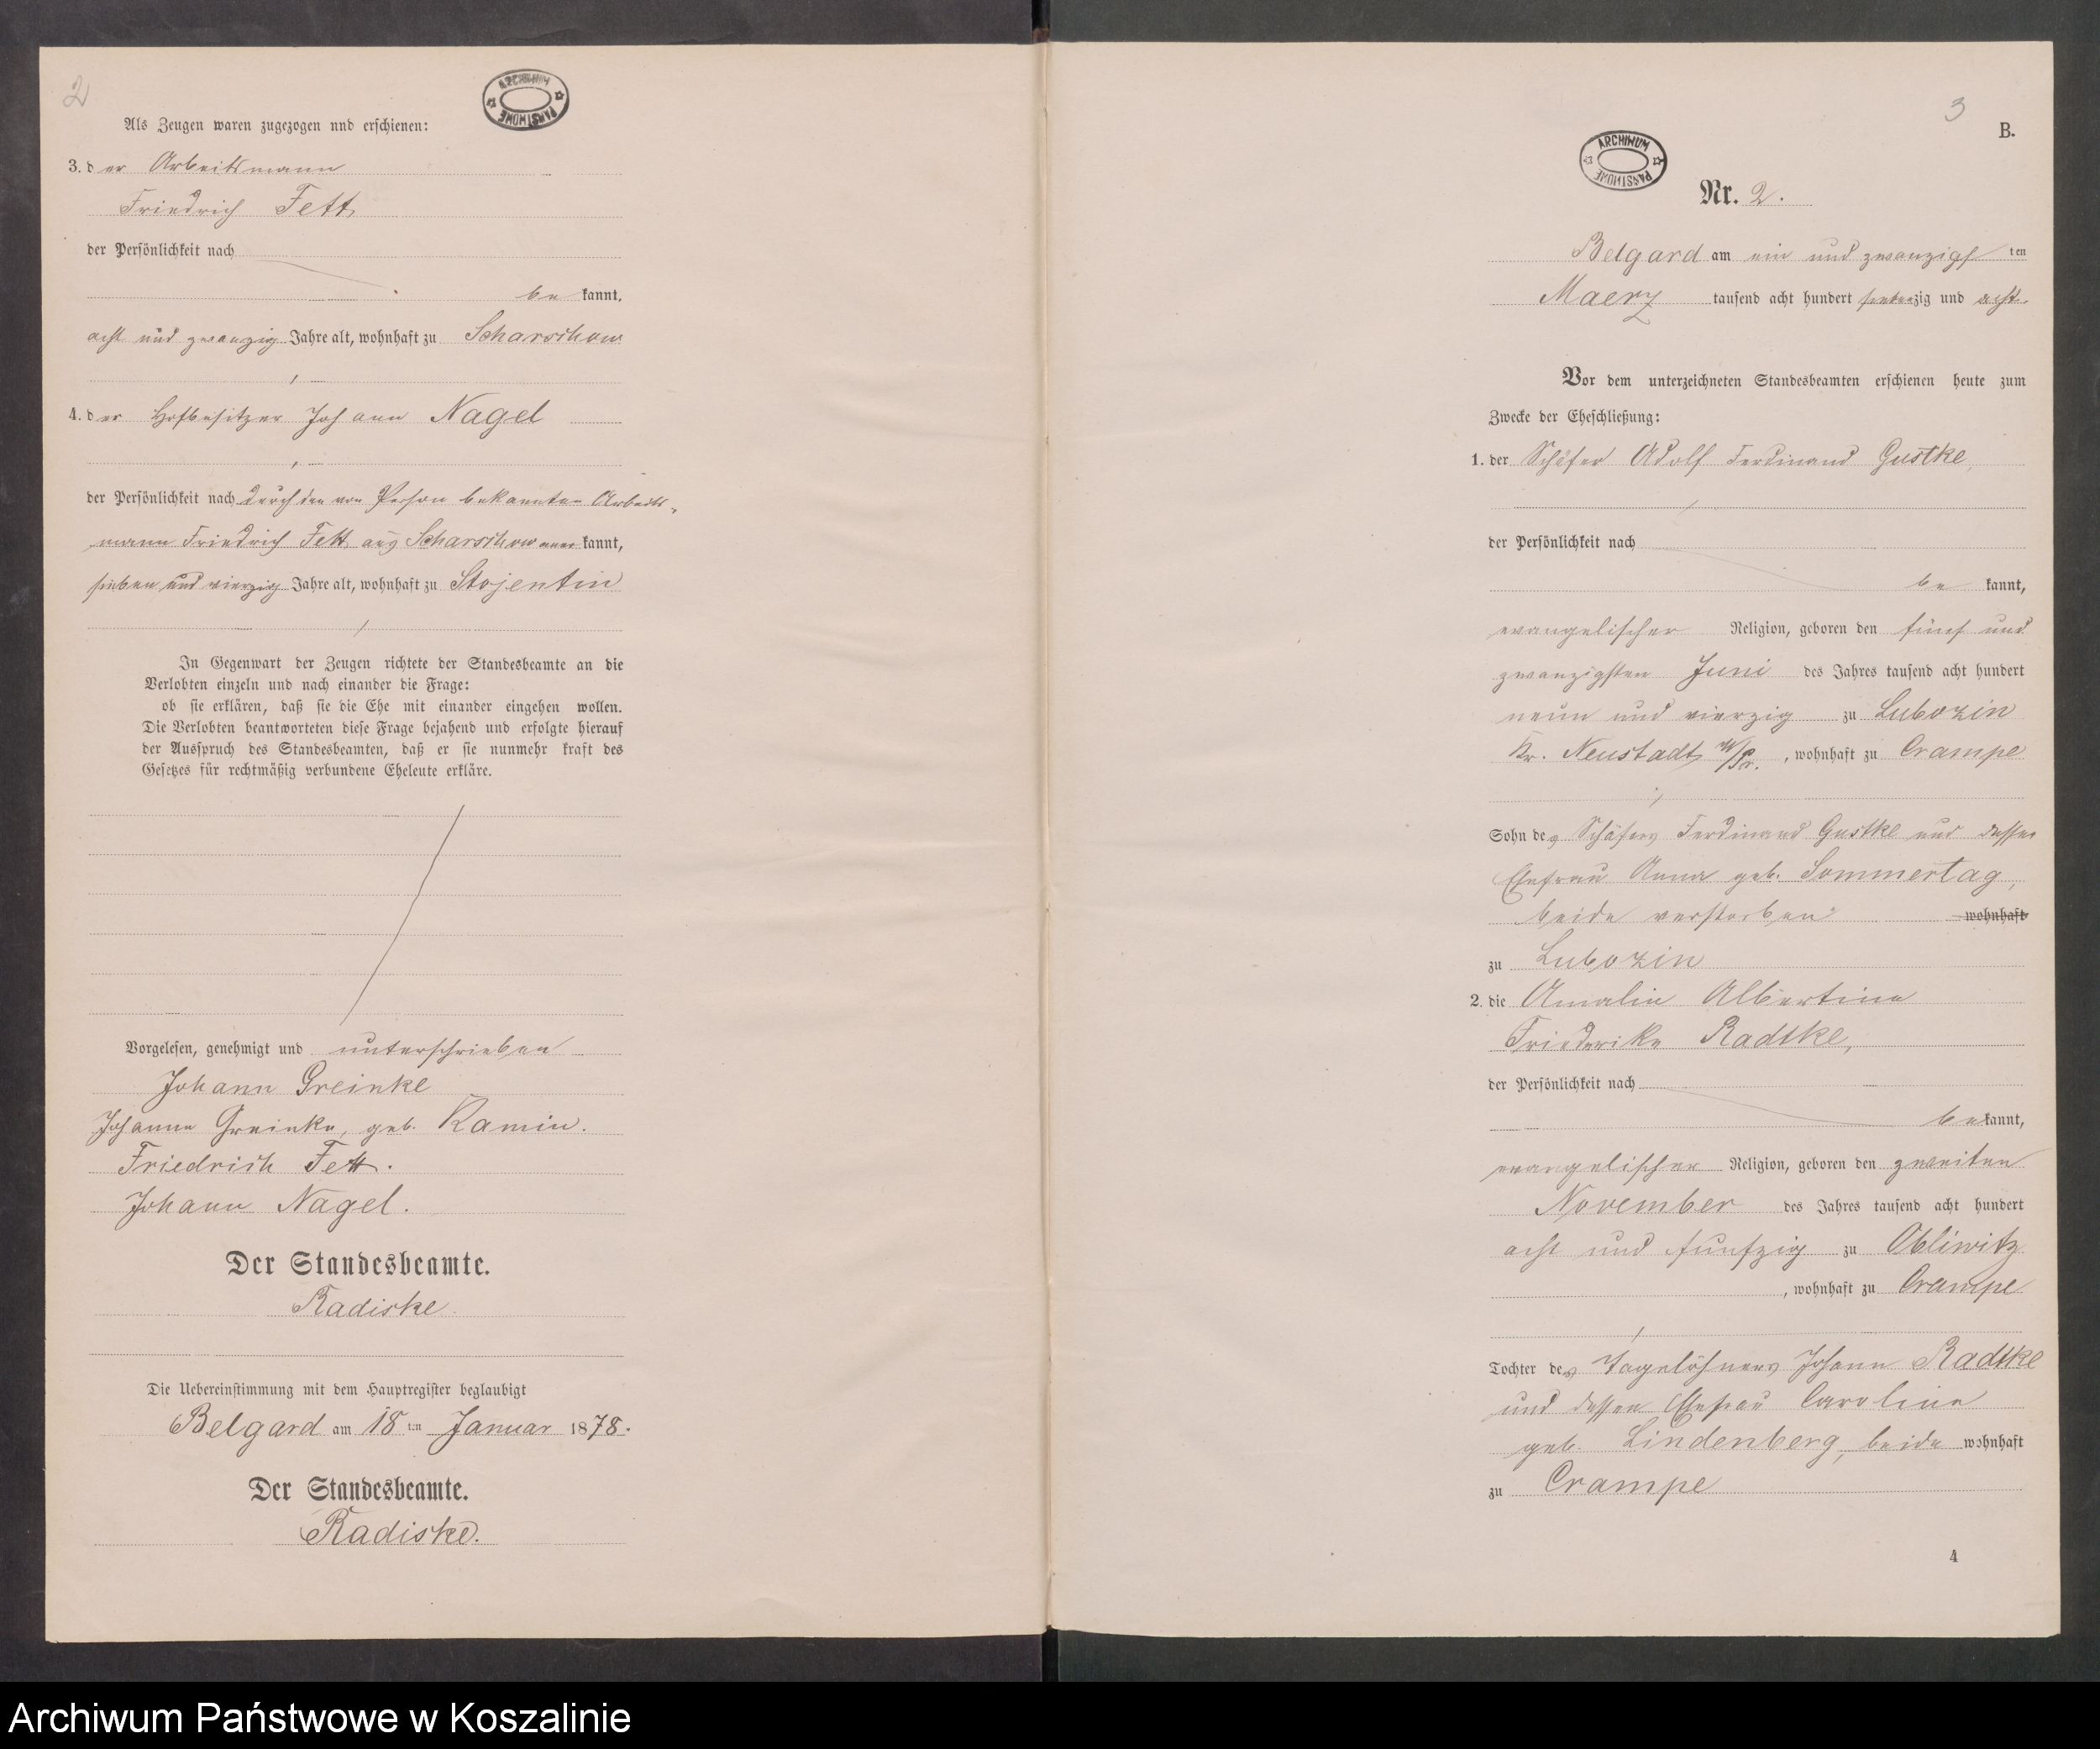 2
ARCHIWUM PAŃSTWOWE
Als Zeugen waren zugezogen nnd erschienen:
3. der Arbeitsmann
Friedrich Fett
der Persönlichkeit nach
be kannt,
acht und zwanzig Jahre alt, wohnhaft zu Scharschow
4. der Hofbesitzer Johann Nagel
der Persönlichkeit nach durch den von Person bekannten Arbeits-
mann Friedrich Fett aus Scharschow aner kannt,
sieben und vierzig Jahre alt, wohnhaft zu Stojentin
In Gegenwart der Zeugen richtete der Standesbeamte an die
Verlobten einzeln und nach einander die Frage:
ob sie erklären, daß sie die Ehe mit einander eingehen wollen.
Die Verlobten beantworteten diese Frage bejahend und erfolgte hierauf
der Ausspruch des Standesbeamten, daß er sie nunmehr kraft des
Gesetzes für rechtmäßig verbundene Eheleute erkläre.
Vorgelesen, genehmigt und unterschrieben
Johann Greinke
Johanne Greinke, geb. Kamin.
Friedrich Fett.
Johann Nagel.
Der Standesbeamte.
Radiske
Die Uebereinstimmung mit dem Hauptregister beglaubigt
Belgard am 18 ten Januar 1878.
Der Standesbeamte.
Radiske.
3
B.
ARCHIWUM PAŃSTWOWE
Nr. 2.
Belgard am ein und zwanzigs ten
Maerz tausend acht hundert siebenzig und acht
Vor dem unterzeichneten Standesbeamten erschienen heute zum
Zwecke der Eheschließung:
1. der Schäfer Adolf Ferdinand Gustke,
der Persönlichkeit nach
be kannt,
evangelischer Religion, geboren den fünf und
zwanzigsten Juni des Jahres tausend acht hundert
neun und vierzig zu Lubozin
Kr. Neustadt W/Pr. , wohnhaft zu Crampe
Sohn des Schäfers Ferdinand Gustke und dessen
Ehefrau Anna geb. Sommertag,
beide verstorben wohnhaft
zu Lubozin
2. die Amalie Albertine
Friederike Radtke,
der Persönlichkeit nach
bekannt,
evangelischer Religion, geboren den zweiten
November des Jahres tausend acht hundert
acht und funfzig zu Obliwitz
, wohnhaft zu Crampe
Tochter des Tagelöhners Johann Radtke
und dessen Ehefrau Caroline
geb. Lindenberg, beide wohnhaft
zu Crampe
4
Archiwum Państwowe w Koszalinie